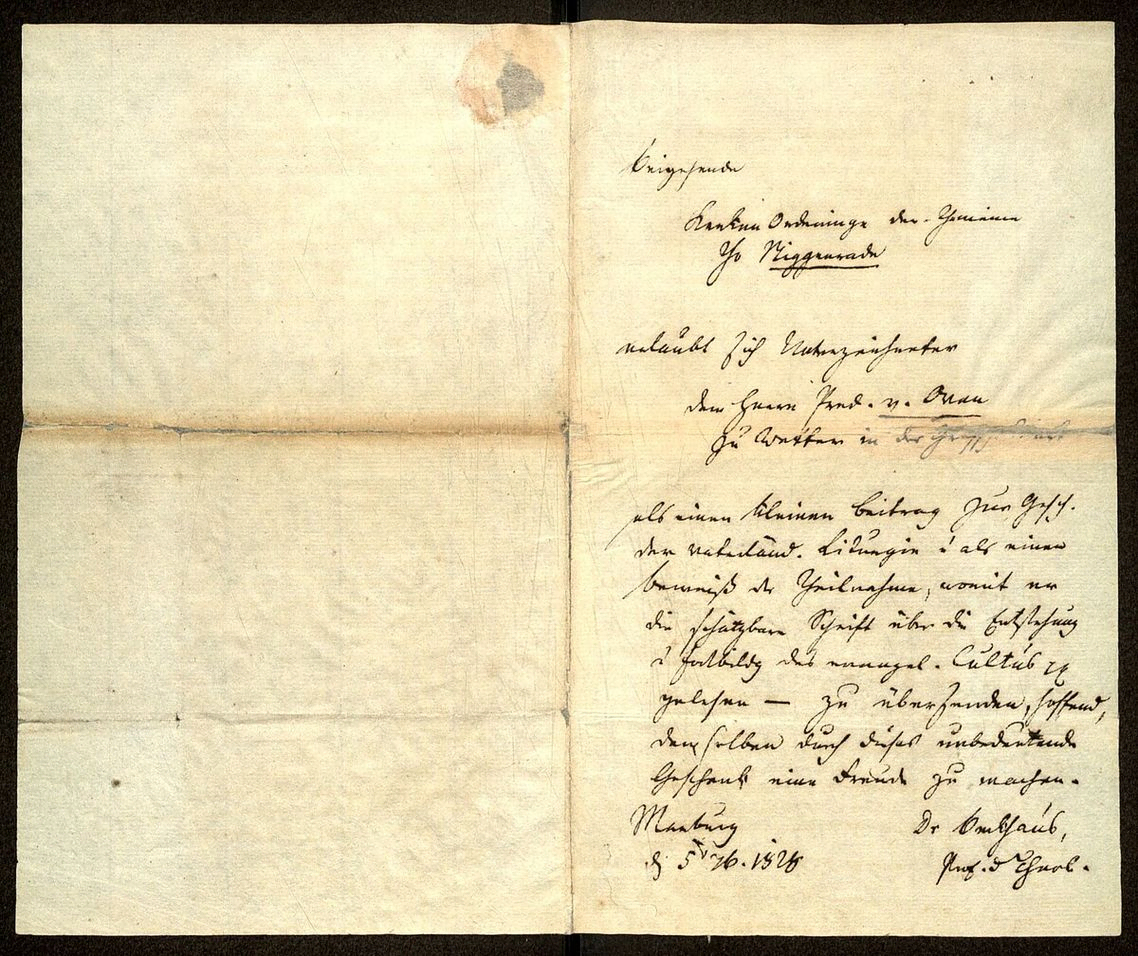 Beigehende
Kerken Ordeninge der Gemeine
Tho Niggenrade
erlaubt sich Unterzeichneter
dem Herrn Pred. v. Oven
zu Wetter in der Grafschaft
als einen kleinen Beitrag zur Gesch.
der vaterländ. Liturgie u als einen
Beweiß der Theilnahme, womit er
die schätzbare Schrift über die Entstehung
u Fortbildg des evangel. Cultus
gelesen — zu übersenden, hoffend,
demselben durch dieses unbedeutende
Geschenk eine Freude zu machen.
Marburg Dr Beckhaus,
d 5 1828 Prof. d Theol.